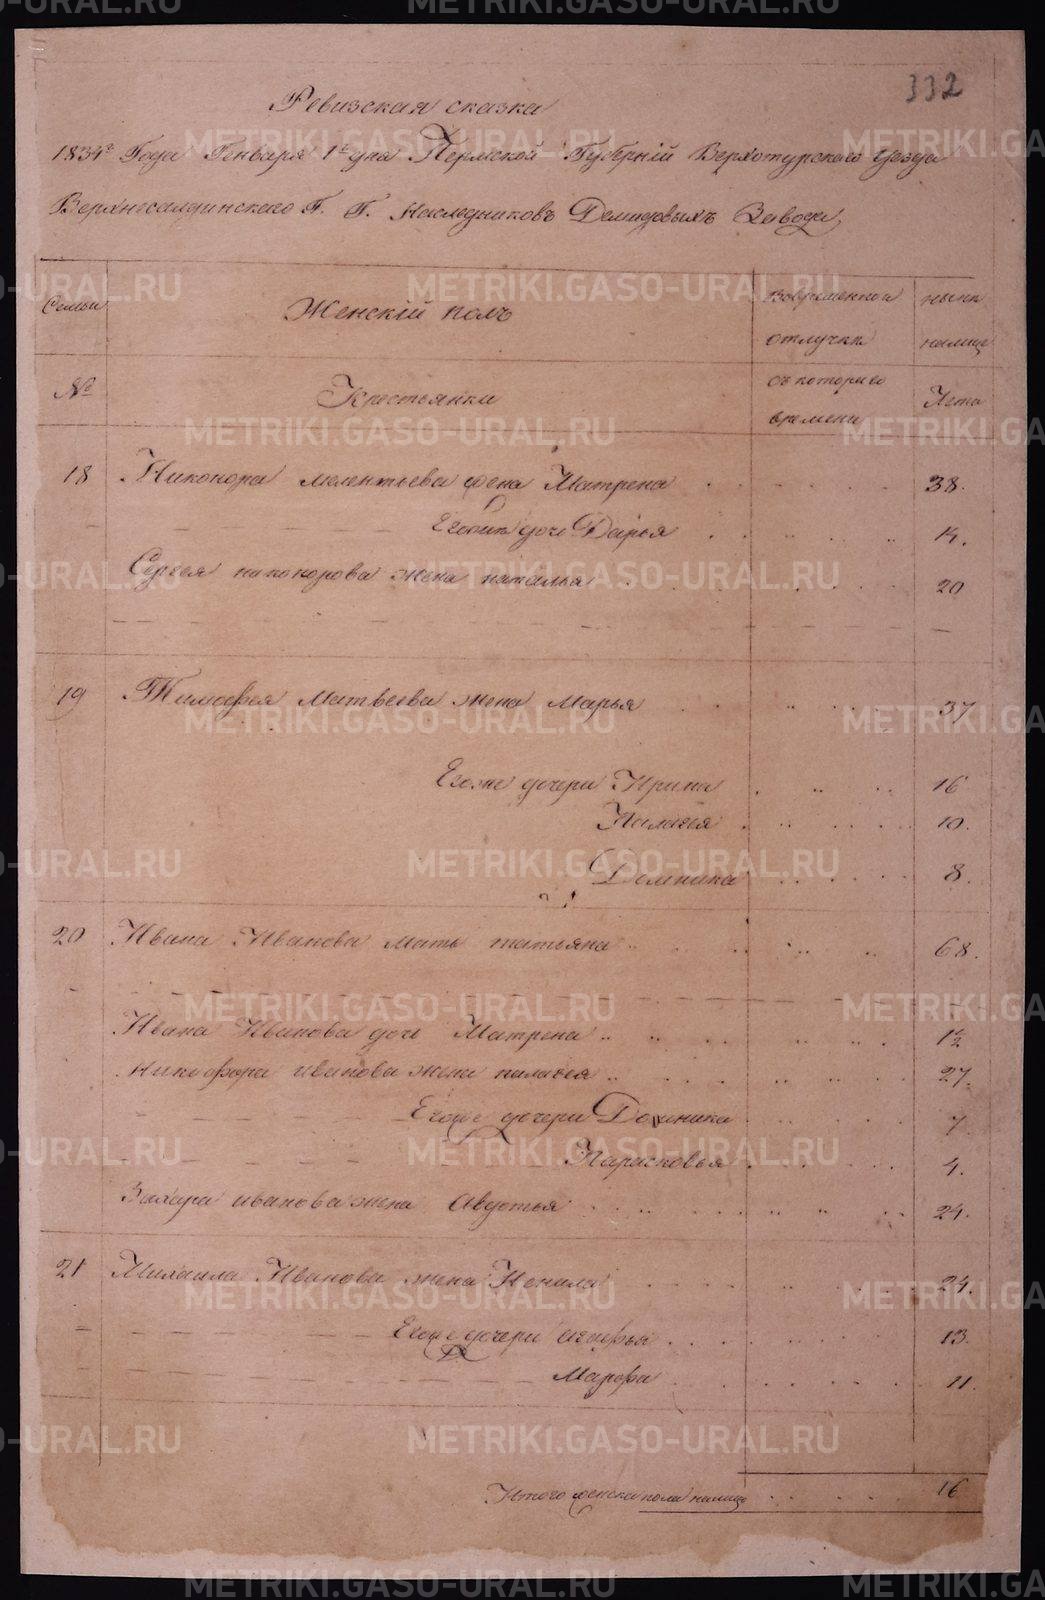 332
Ревизская сказка
1834г Года Генваря 1г дня Пермской Губерніи Верхотурского уезда
Верхнесалдинского Г. Г. Наследниковъ Демидовыхъ Завода,
Семьи
Женскій полъ
Вовременной отлучки
ныне налицо
№
Крестьянки
съ которого времени
Лета
18 Никонора мелентьева жена Матрена 38.
Егоже дочь Дарья 14.
Сергея никонорова жена наталья 20
19 Тимофея Матвеева жена Марья 37
Егоже дочери Ирина 16
Палагея 10.
Домника 8.
20 Ивана Иванова мать татьяна 68.
Ивана Иванова дочь Матрена 12
никифора иванова жена палагея 27.
Егоже дочери Домника 7
Парасковья 4.
Захара иванова жена Авдотья 24.
21 Михаила Иванова жена Ненила 24.
Егоже дочери агафья 13.
Марфа 11.
Итого женска пола налицо 16
METRIKI.GASO-URAL.RU